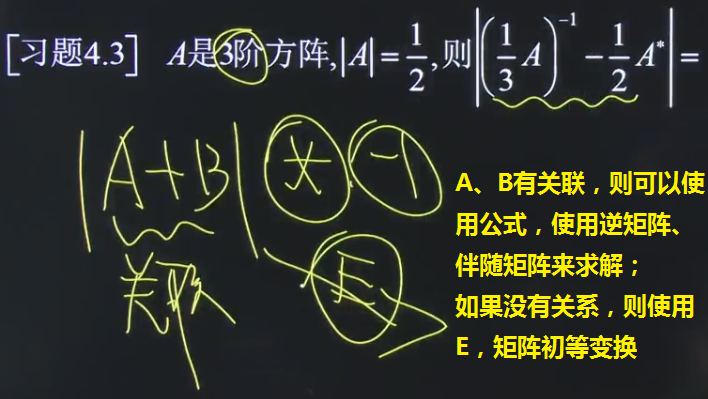 [习题4.3] A是3阶方阵,|A|=1/2,则|(1/3 A)^-1 - 1/2 A*|=
|A+B| * -1
关联 E
A、B有关联，则可以使
用公式，使用逆矩阵、
伴随矩阵来求解；
如果没有关系，则使用
E，矩阵初等变换